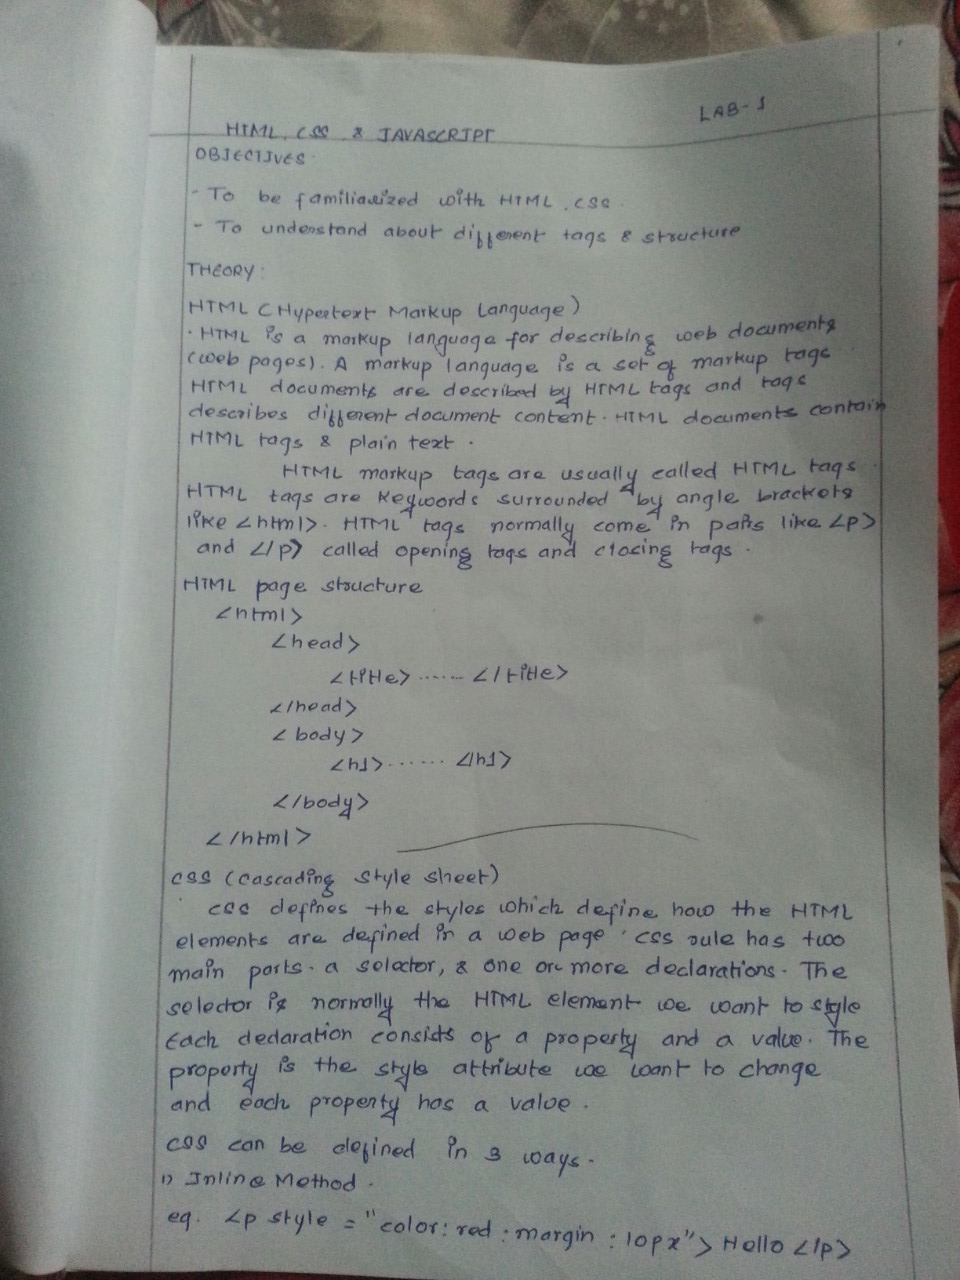 LAB-1
HTML, CSS & JAVASCRIPT
OBJECTIVES
- To be familiarized with HTML, CSS.
- To understand about different tags & structure
THEORY:
HTML (Hypertext Markup Language)
. HTML is a markup language for describing web documents
(web pages). A markup language is a set of markup tags
HTML documents are described by HTML tags and tags
describes different document content. HTML documents contain
HTML tags & plain text.
HTML markup tags are usually called HTML tags.
HTML tags are keywords surrounded by angle brackets
like <html>. HTML tags normally come in pairs like <p>
and </p> called opening tags and closing tags.
HTML page structure
<html>
<head>
<title> ...... </title>
</head>
<body>
<h1> ...... </h1>
</body>
</html>
CSS (Cascading style sheet)
CSS defines the styles which define how the HTML
elements are defined in a web page. CSS rule has two
main parts. a selector, & one or more declarations. The
selector is normally the HTML element we want to style
Each declaration consists of a property and a value. The
property is the style attribute we want to change
and each property has a value.
CSS can be defined in 3 ways.
1) Inline Method.
eg. <p style = "color: red : margin : 10px"> Hello </p>